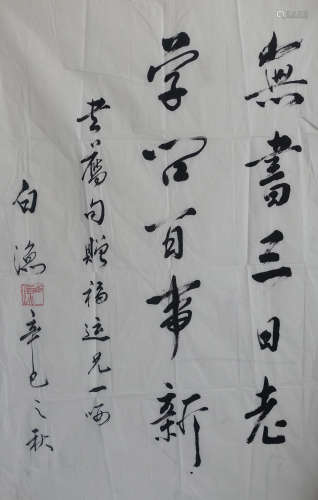 無書三日老
学问百事新
书旧句赠福运兄一哂
白漁
辛巳之秋